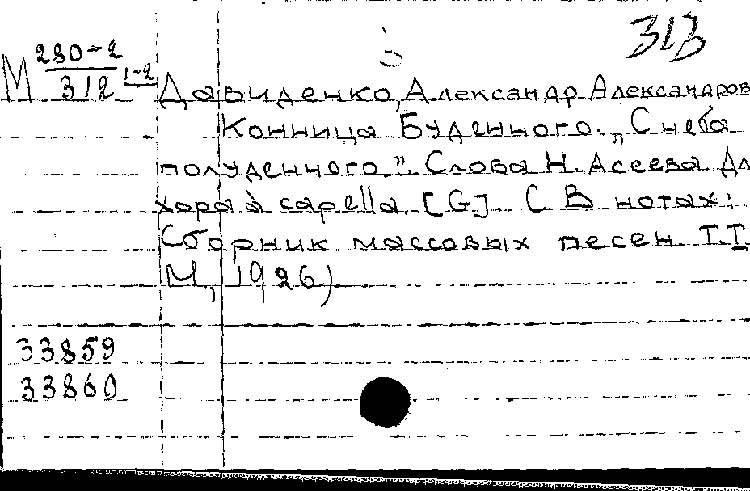 313
М 280-2
312 1-2
Давиденко, Александр Александров
Конница Буденного. „С неба
полуденного". Слова Н. Асеева Дл
хора à capella [G] ( В нотах:
Сборник массовых песен. Т.I
М, 1926)
33859
33860